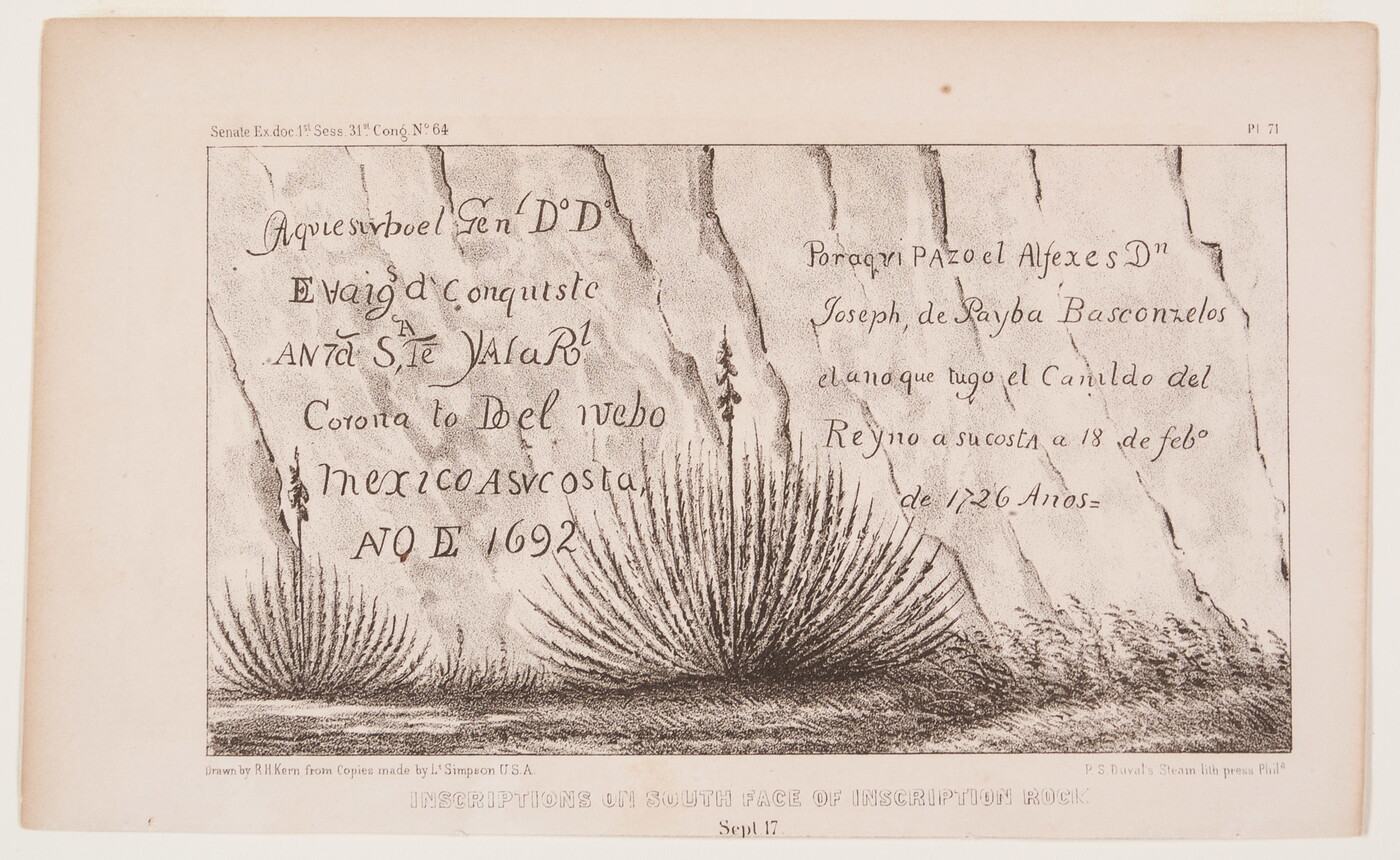 Senate Ex.doc.1st Sess. 31st Cong. No 64
Pl 71
Aquiesivboel Genl Do Do
E Vaigs d Conquiste
AN7d S,A Te YAlaRl
Corona to Del nvebo
mexicoAsvcosta,
AÑO DE 1692
Poraqvi PAzo el Alfexes Dn
Joseph, de Payba Basconzelos
el ano que tugo el Camldo del
Reyno a su costA a 18 de febo
de 1726 Anos=
Drawn by R.H.Kern from Copies made by Lt Simpson U.S.A.
P.S. Duval's Steam lith press Phila
INSCRIPTIONS ON SOUTH FACE OF INSCRIPTION ROCK
Sept 17